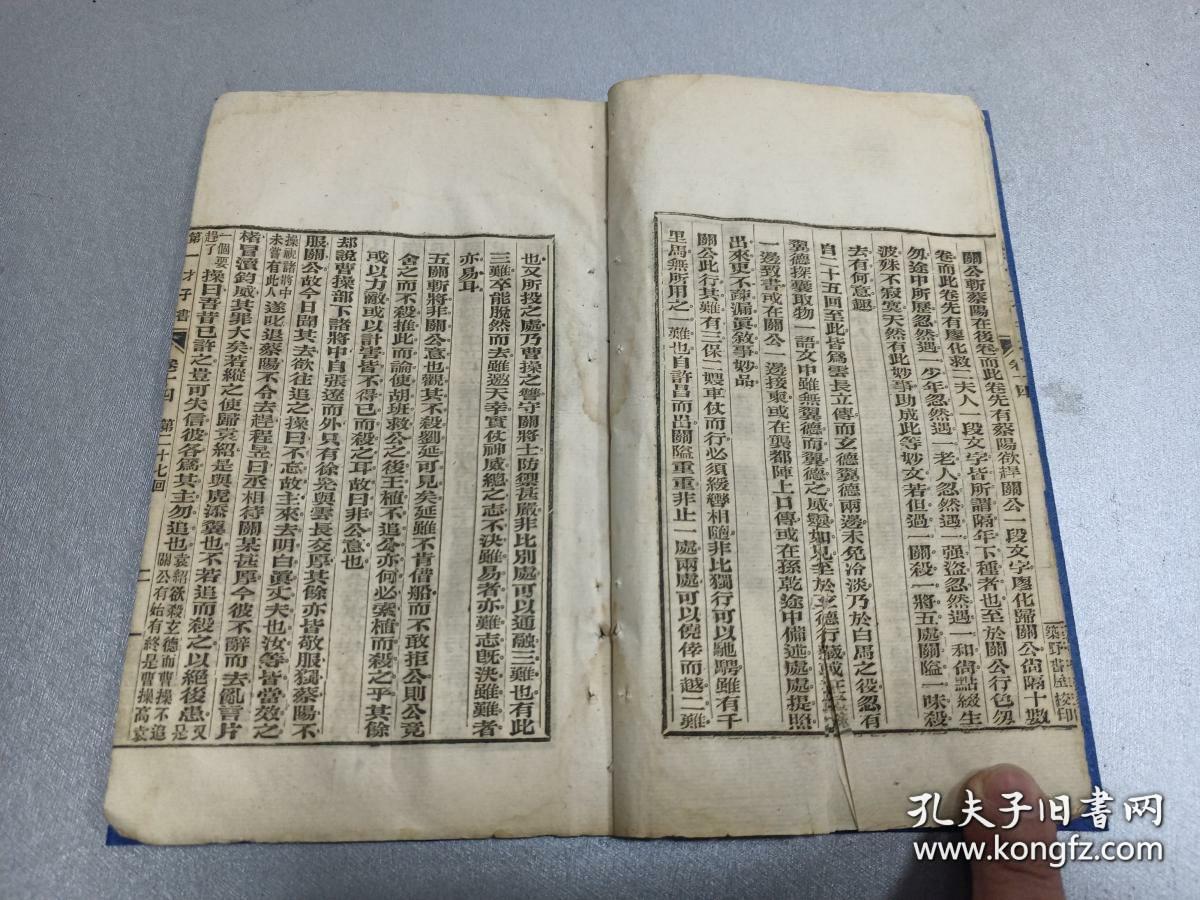 關公斬蔡陽在後卷而此卷先有蔡陽欲趕關公一段文字廖化歸關公尚隔十數
卷而此卷先有廖化救二夫人一段文字皆所謂隔年下種者也至於關公行色匆
匆途中所歷忽然遇一少年忽然遇一老人忽然遇一强盜忽然遇一和尚點綴生
波殊不寂寞天然有此妙事助成此等妙文若但過一關殺一將五處關隘一味殺
去有何意趣
自二十五回至此皆爲雲長立傳而玄德翼德兩邊未免冷淡乃於白馬之役忽有
翼德探囊取物一語文中雖無翼德而翼德之威靈如見至於玄德行藏或在
一邊致書或在關公一邊接柬或在龔都陣上口傳或在孫乾途中備述處處提照
出來更不疎漏眞敘事妙品
關公此行其難有三保二嫂車仗而行必須緩轡相隨非比獨行可以馳騁雖有千
里馬無所用之一難也自許昌而出關隘重重非止一處兩處可以僥倖而越二難
也又所投之處乃曹操之讐守關將士防禦甚嚴非比別處可以通融三難也有此
三難卒能脫然而去雖邀天幸實仗神威總之志不決雖易者亦難志旣決雖難者
亦易耳
五關斬將非關公意也觀其不殺劉延可見矣延雖不肯借船而不敢拒公則公竟
舍之而不殺推此而論使胡班救公之後王植不追公亦何必索植而殺之乎其餘
或以力敵或以計害皆不得已而殺之耳故曰非公意也
却說曹操部下諸將中自張遼而外只有徐晃與雲長交厚其餘亦皆敬服獨蔡陽不
服關公故今日聞其去欲往追之操曰不忘故主來去明白眞丈夫也汝等皆當效之
操視諸將中未嘗有此人遂叱退蔡陽不令去趕程昱曰丞相待關某甚厚今彼不辭而去亂言片
楮冒瀆鈞威其罪大矣若縱之使歸袁紹是與虎添翼也不若追而殺之以絕後患又是
一個要趕了操曰吾昔已許之豈可失信彼各爲其主勿追也袁紹欲殺玄德而曹操不追關公有始有終是曹操高袁
第一才子書
卷十四
第二十七回
二
孔夫子旧书网
www.kongfz.com